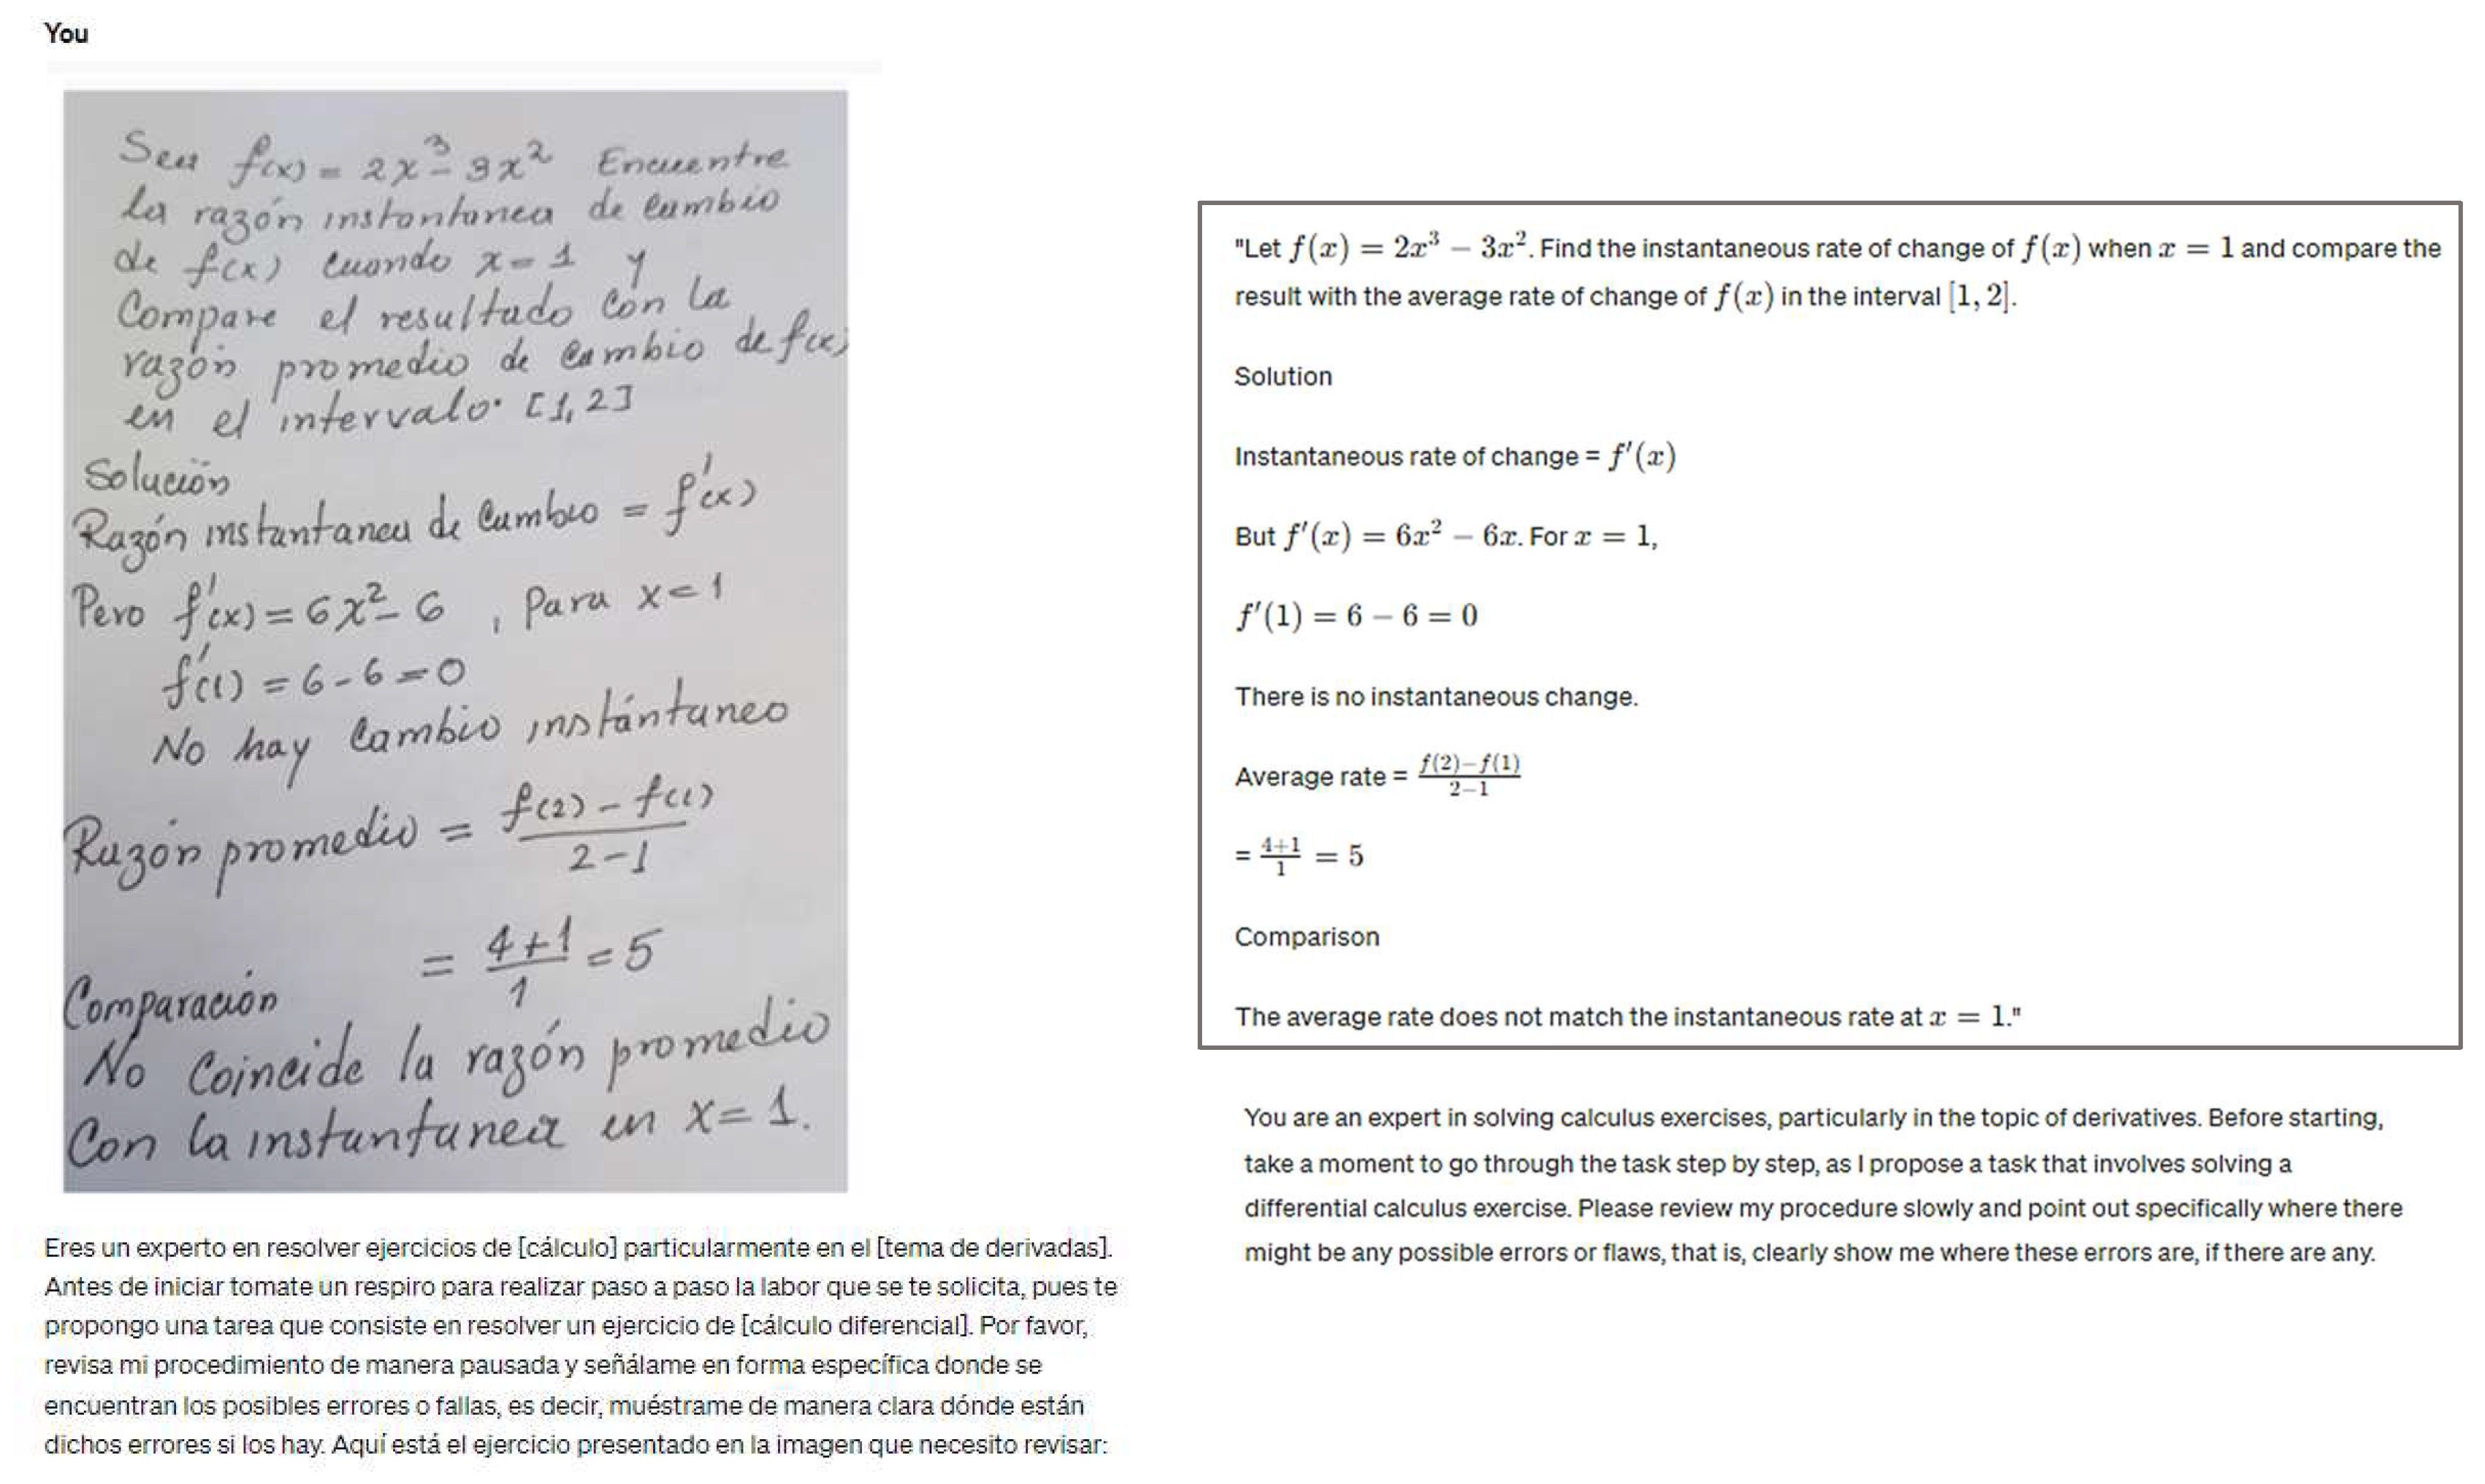 You
Sea f(x) = 2x³ - 3x² Encuentre
la razón instantanea de cambio
de f(x) cuando x = 1 y
Compare el resultado con la
razón promedio de cambio de f(x)
en el intervalo. [1, 2]
Solución
Razón instantanea de Cambio = f'(x)
Pero f'(x) = 6x² - 6 , Para x = 1
f'(1) = 6 - 6 = 0
No hay Cambio instántaneo
Razón promedio = \frac{f(2) - f(1)}{2 - 1}
= \frac{4 + 1}{1} = 5
Comparación
No Coincide la razón promedio
Con la instantanea en x = 1.
Eres un experto en resolver ejercicios de [cálculo] particularmente en el [tema de derivadas].
Antes de iniciar tomate un respiro para realizar paso a paso la labor que se te solicita, pues te
propongo una tarea que consiste en resolver un ejercicio de [cálculo diferencial]. Por favor,
revisa mi procedimiento de manera pausada y señálame en forma específica donde se
encuentran los posibles errores o fallas, es decir, muéstrame de manera clara dónde están
dichos errores si los hay. Aquí está el ejercicio presentado en la imagen que necesito revisar:
"Let f(x) = 2x³ − 3x². Find the instantaneous rate of change of f(x) when x = 1 and compare the
result with the average rate of change of f(x) in the interval [1, 2].
Solution
Instantaneous rate of change = f'(x)
But f'(x) = 6x² − 6x. For x = 1,
f'(1) = 6 − 6 = 0
There is no instantaneous change.
Average rate = \frac{f(2)−f(1)}{2−1}
= \frac{4+1}{1} = 5
Comparison
The average rate does not match the instantaneous rate at x = 1."
You are an expert in solving calculus exercises, particularly in the topic of derivatives. Before starting,
take a moment to go through the task step by step, as I propose a task that involves solving a
differential calculus exercise. Please review my procedure slowly and point out specifically where there
might be any possible errors or flaws, that is, clearly show me where these errors are, if there are any.